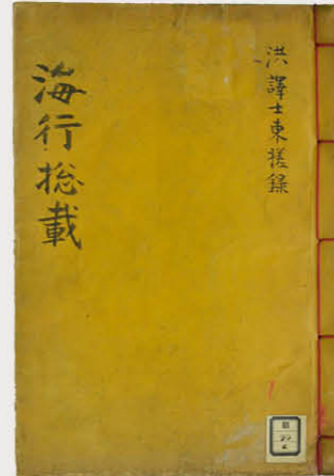 洪譯士東槎錄
海行摠載